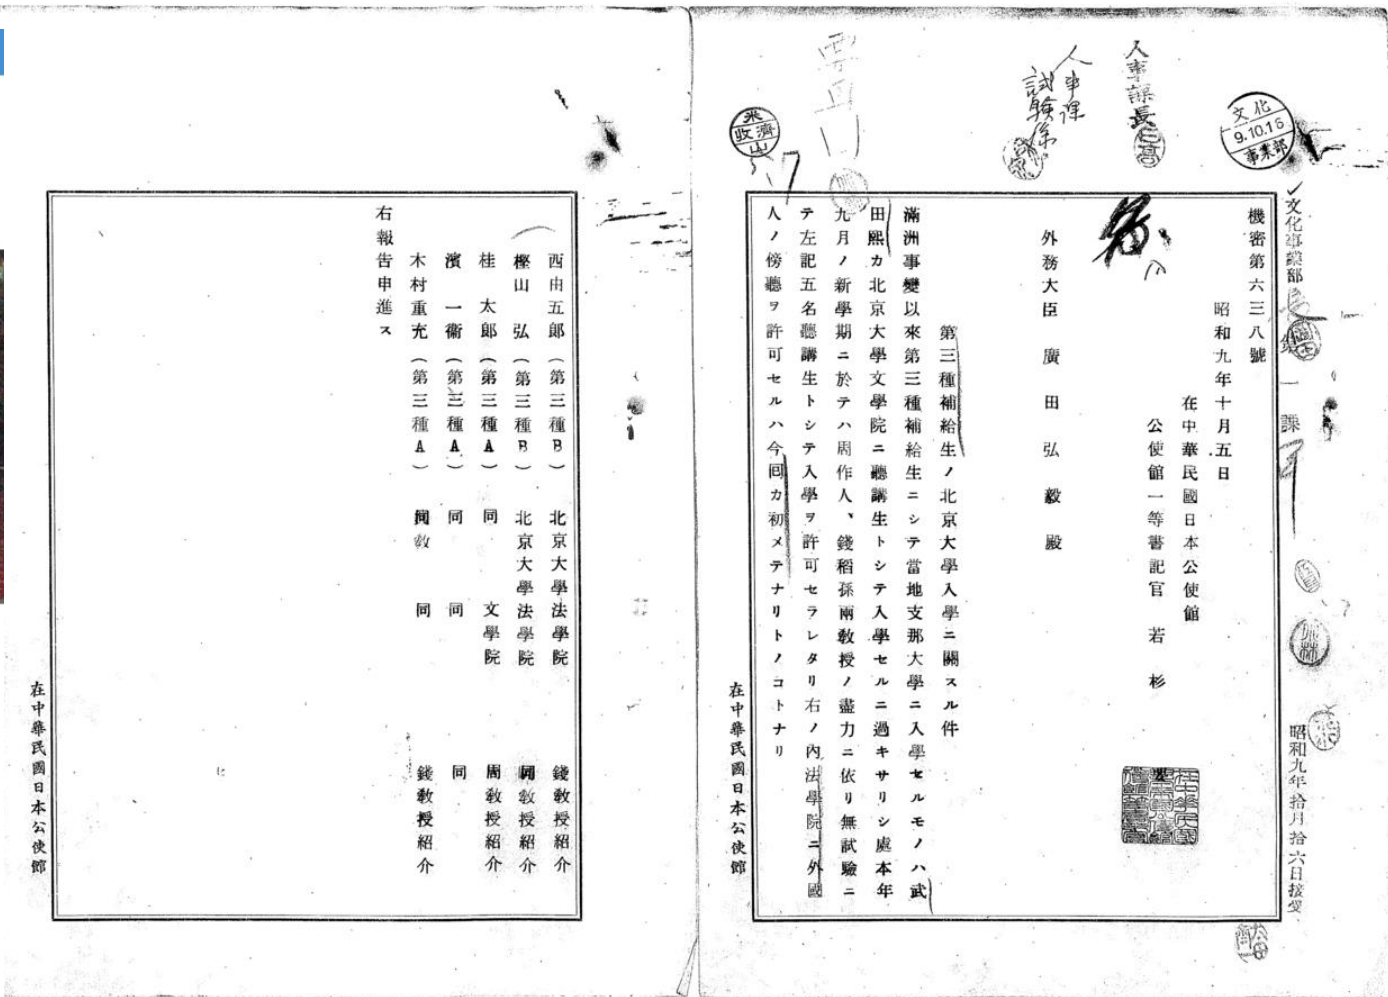 人事課長
人事課
試験係
文化
9.10.16
事業部
文化事業部
第一課
昭和九年拾月拾六日接受
機密第六三八號
昭和九年十月五日
在中華民國日本公使館
公使館一等書記官 若 杉
外務大臣 廣 田 弘 毅 殿
第三種補給生ノ北京大學入學ニ關スル件
滿洲事變以來第三種補給生ニシテ當地支那大學ニ入學セルモノハ武
田熙カ北京大學文學院ニ聽講生トシテ入學セルニ過キサリシ處本年
九月ノ新學期ニ於テハ周作人、錢稻孫兩敎授ノ盡力ニ依リ無試驗ニ
テ左記五名聽講生トシテ入學ヲ許可セラレタリ右ノ內法學院ニ外國
人ノ傍聽ヲ許可セルハ今囘カ初メテナリトノコトナリ
在中華民國日本公使館
西由五郎(第三種B) 北京大學法學院 錢敎授紹介
樫山 弘(第三種B) 北京大學法學院 同敎授紹介
桂 太郎(第三種A) 同 文學院 周敎授紹介
濱 一衞(第三種A) 同 同 同
木村重充(第三種A) 同 同 錢敎授紹介
右報告申進ス
在中華民國日本公使館